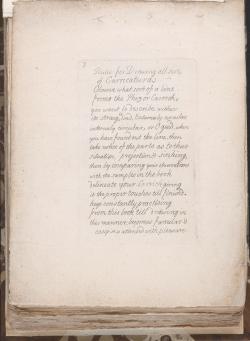 Rules for Drawing all sorts
of Carricaturas
Observe what sort of a line
forms the Phiz or Carrick,
you want to describe whether
its straight lined, Externaly circular
internaly circular, or Ogeed. when
you have found out the line, then
take notice of the parts as to their
situation, projection & sinking,
then by comparing your observations
with the samples in the book
delineate your Carrick giving
it the proper touches till finish'd
constantly practising
from this book till drawing in
this manner becomes familiar &
easy & is attended with pleasure